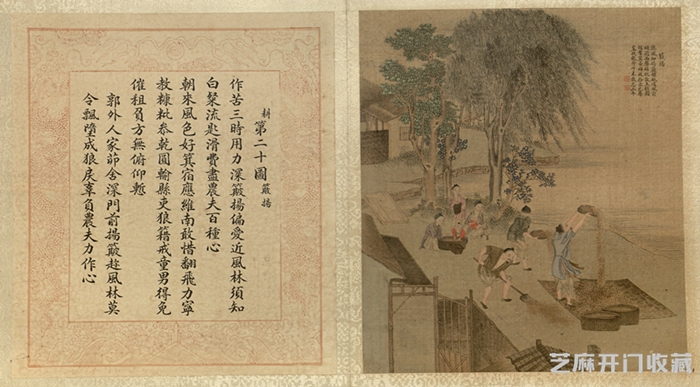 耕第二十圖簸揚
作苦三時用力深簸揚偏愛近風林須知
白粲流匙滑費盡農夫百種心
朝來風色好箕宿應維南敢惜翻飛力寧
教糠粃叅乾圓輸縣吏狼籍戒童男得免
催租負方無俯仰慙
郭外人家茆舍深門前揚簸趂風林莫
令飄墮成狼戾辜負農夫力作心
簸揚
芝麻开门收藏